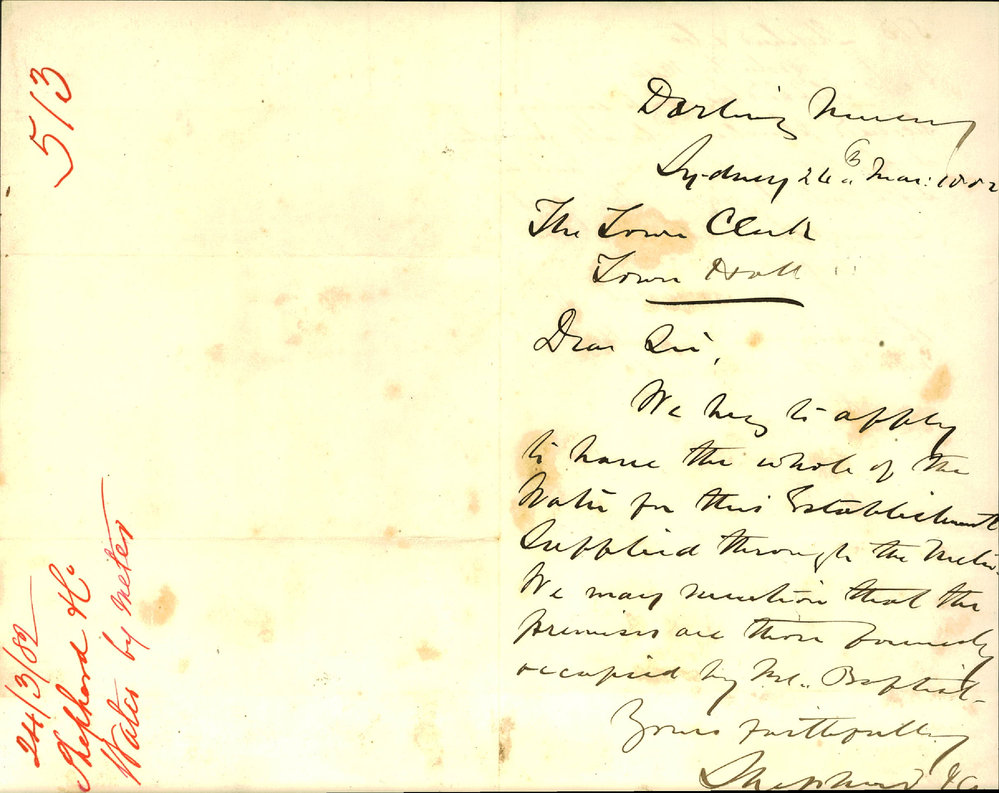 5/3
24/3/82
Shepherd & Co
Water by meter
Darling Nursery
Sydney 24th Mar: 1882
The Town Clerk
Town Hall
Dear Sir,
We beg to apply
to have the whole of the
Water for this Establishment
Supplied through the Meter.
We may mention that the
premises are those formerly
occupied by Mr. Baptist.
Yours faithfully
Shepherd & Co